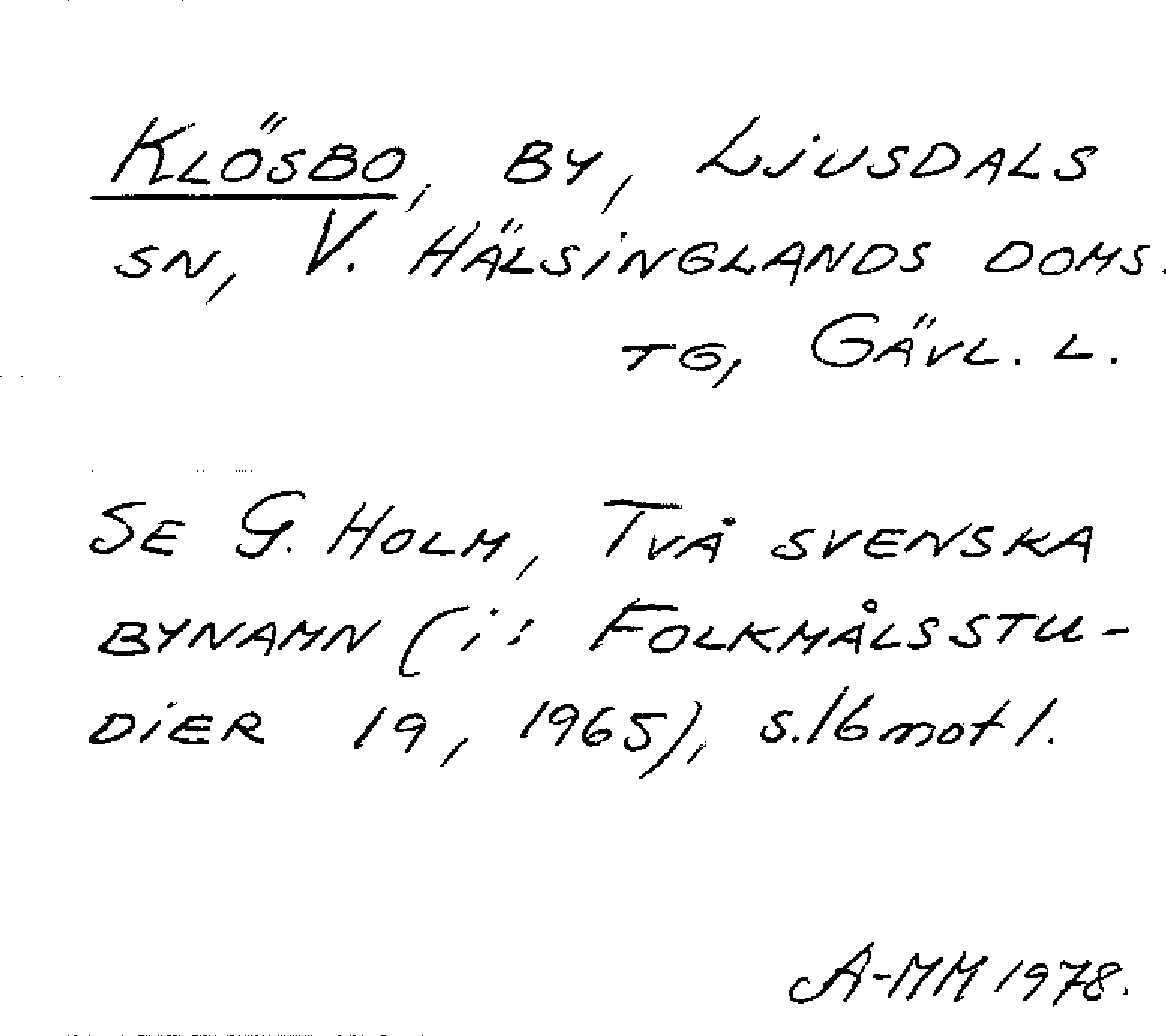 KLÖSBO, BY, LJUSDALS
SN, V. HÄLSINGLANDS DOMS.
TG, GÄVL. L.
SE G. HOLM, TVÅ SVENSKA
BYNAMN (i: FOLKMÅLSSTU-
DIER 19, 1965), s. 16 not 1.
A-MM 1978.